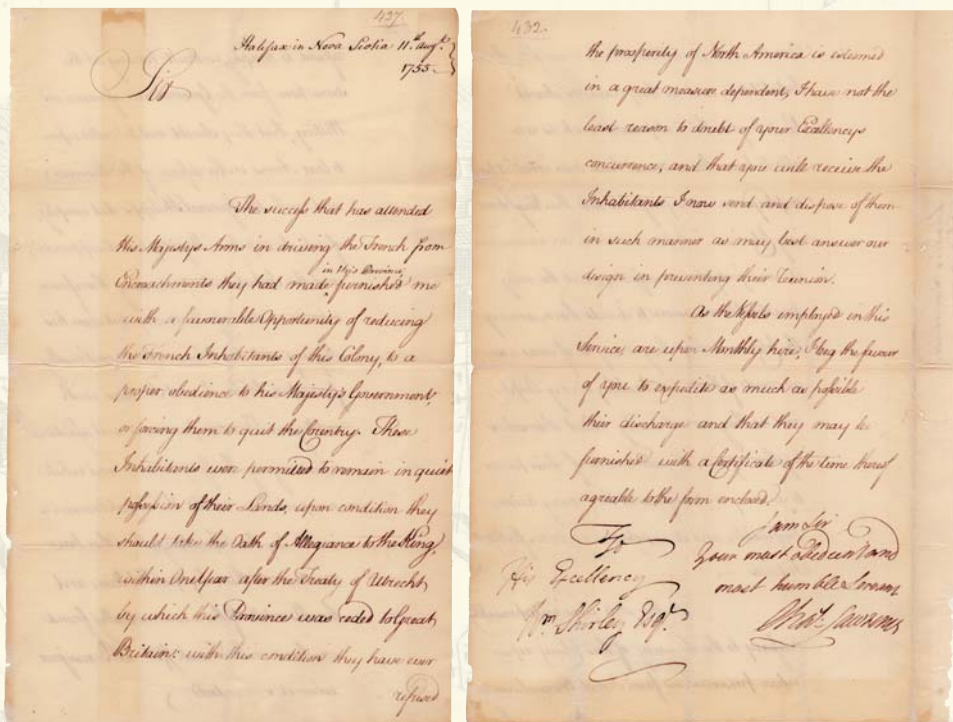 427.
Halifax in Nova Scotia 11th Augt.
1755.
Sir
The success that has attended
His Majestys Arms in driving the French from
in this Province
Encroachments they had made furnished me
with a favourable Opportunity of reducing
the French Inhabitants of this Colony, to a
proper obedience to his Majesty's Government,
or forcing them to quit the Country. These
Inhabitants were permitted to remain in quiet
possession of their Lands, upon condition they
should take the Oath of Allegiance to the King,
within One Year after the Treaty of Utrecht,
by which this Province was ceded to Great
Britain: with this condition they have ever
refused
432.
the prosperity of North America is esteemed
in a great measure dependent, I have not the
least reason to doubt of your Excellencys
concurrence, and that you will receive the
Inhabitants I now send and dispose of them
in such manner as may best answer our
design in preventing their Reunion.
As the Vessels employed in this
Service, are upon Monthly hire, I beg the favour
of you to expedite as much as possible
their discharge and that they may be
furnished with a Certificate of the time thereof
agreable to the form enclosed.
I am Sir
Your most obedient and
most humble Servant
Chas Lawrence
To
His Excellency
Wm. Shirley Esqr.